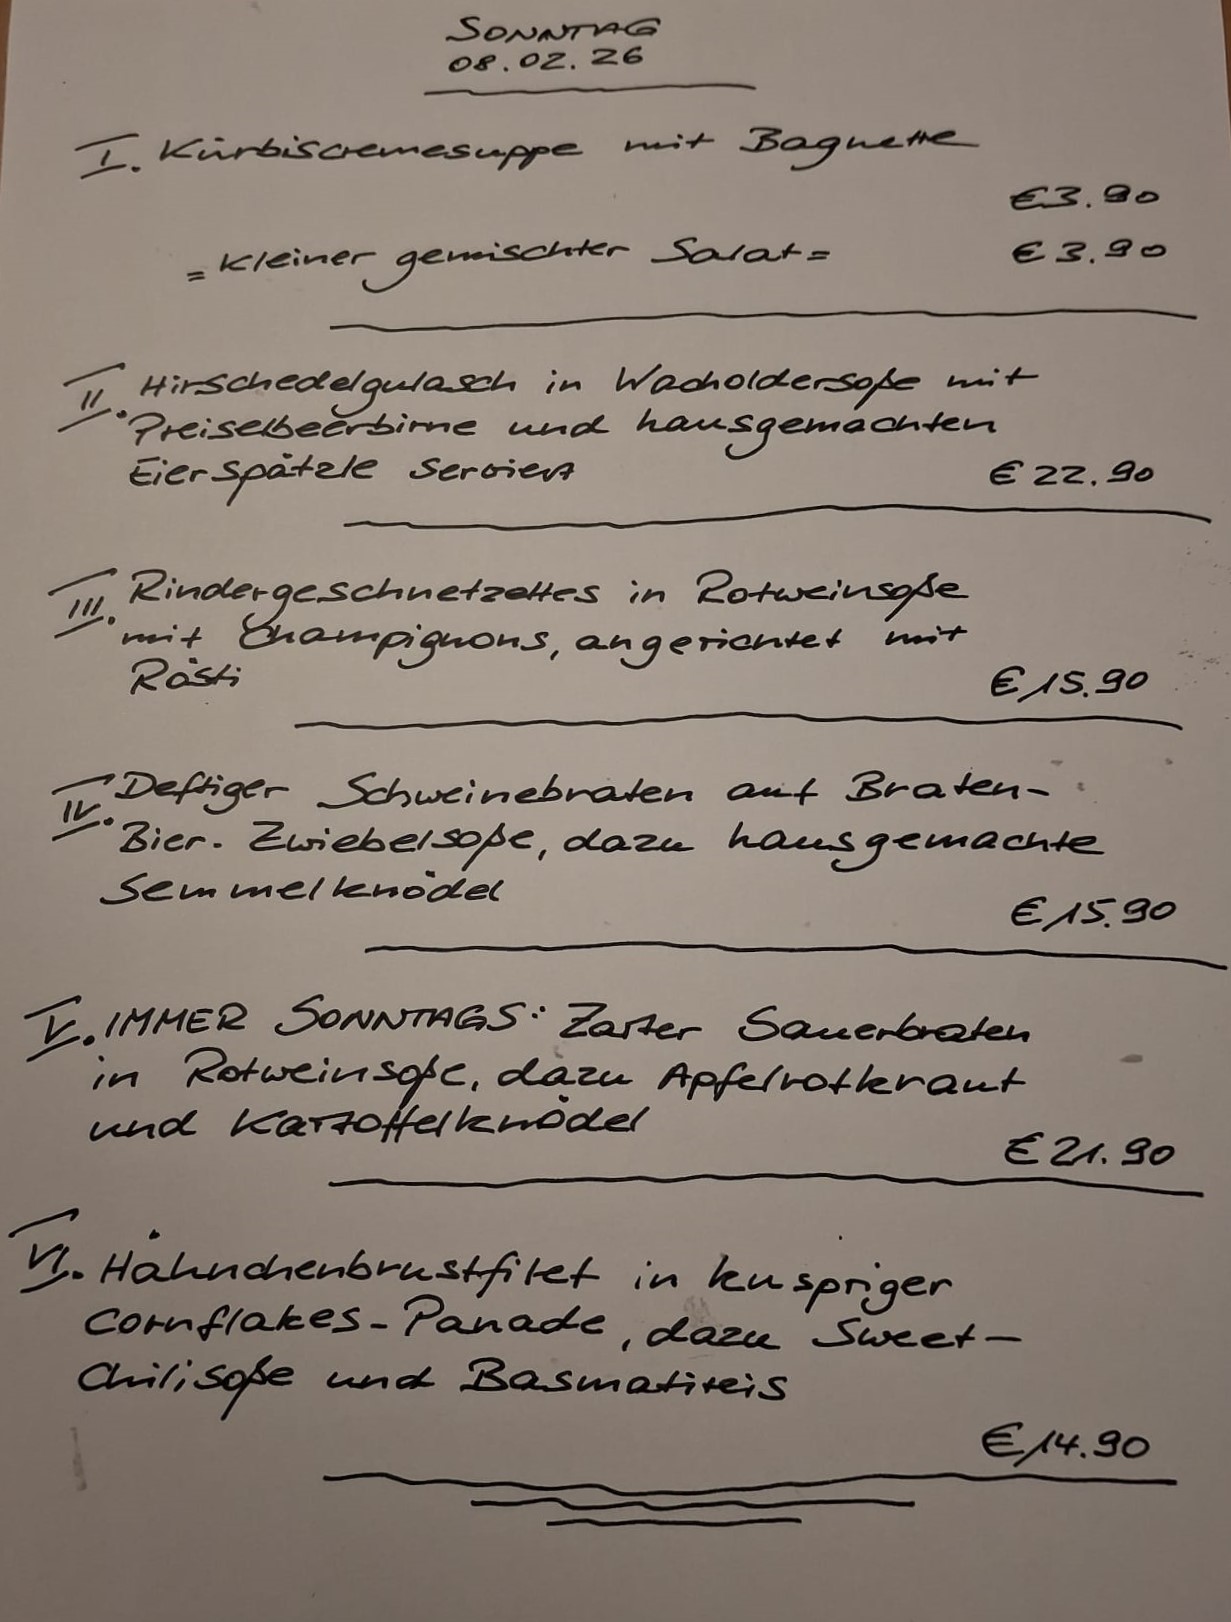 SONNTAG
08.02.26
I. Kürbiscremesuppe mit Baguette
€3.90
= kleiner gemischter Salat = € 3.90
II. Hirschedelgulasch in Wacholdersoße mit
Preiselbeerbirne und hausgemachten
Eierspätzle serviert € 22.90
III. Rindergeschnetzeltes in Rotweinsoße
mit Champignons, angerichtet mit
Rösti € 15.90
IV. Deftiger Schweinebraten auf Braten-
Bier-Zwiebelsoße, dazu hausgemachte
Semmelknödel
€ 15.90
V. IMMER SONNTAGS: Zarter Sauerbraten
in Rotweinsoße, dazu Apfelrotkraut
und Kartoffelknödel
€ 21.90
VI. Hähnchenbrustfilet in kuspriger
Cornflakes-Panade, dazu Sweet-
Chilisoße und Basmatireis
€ 14.90